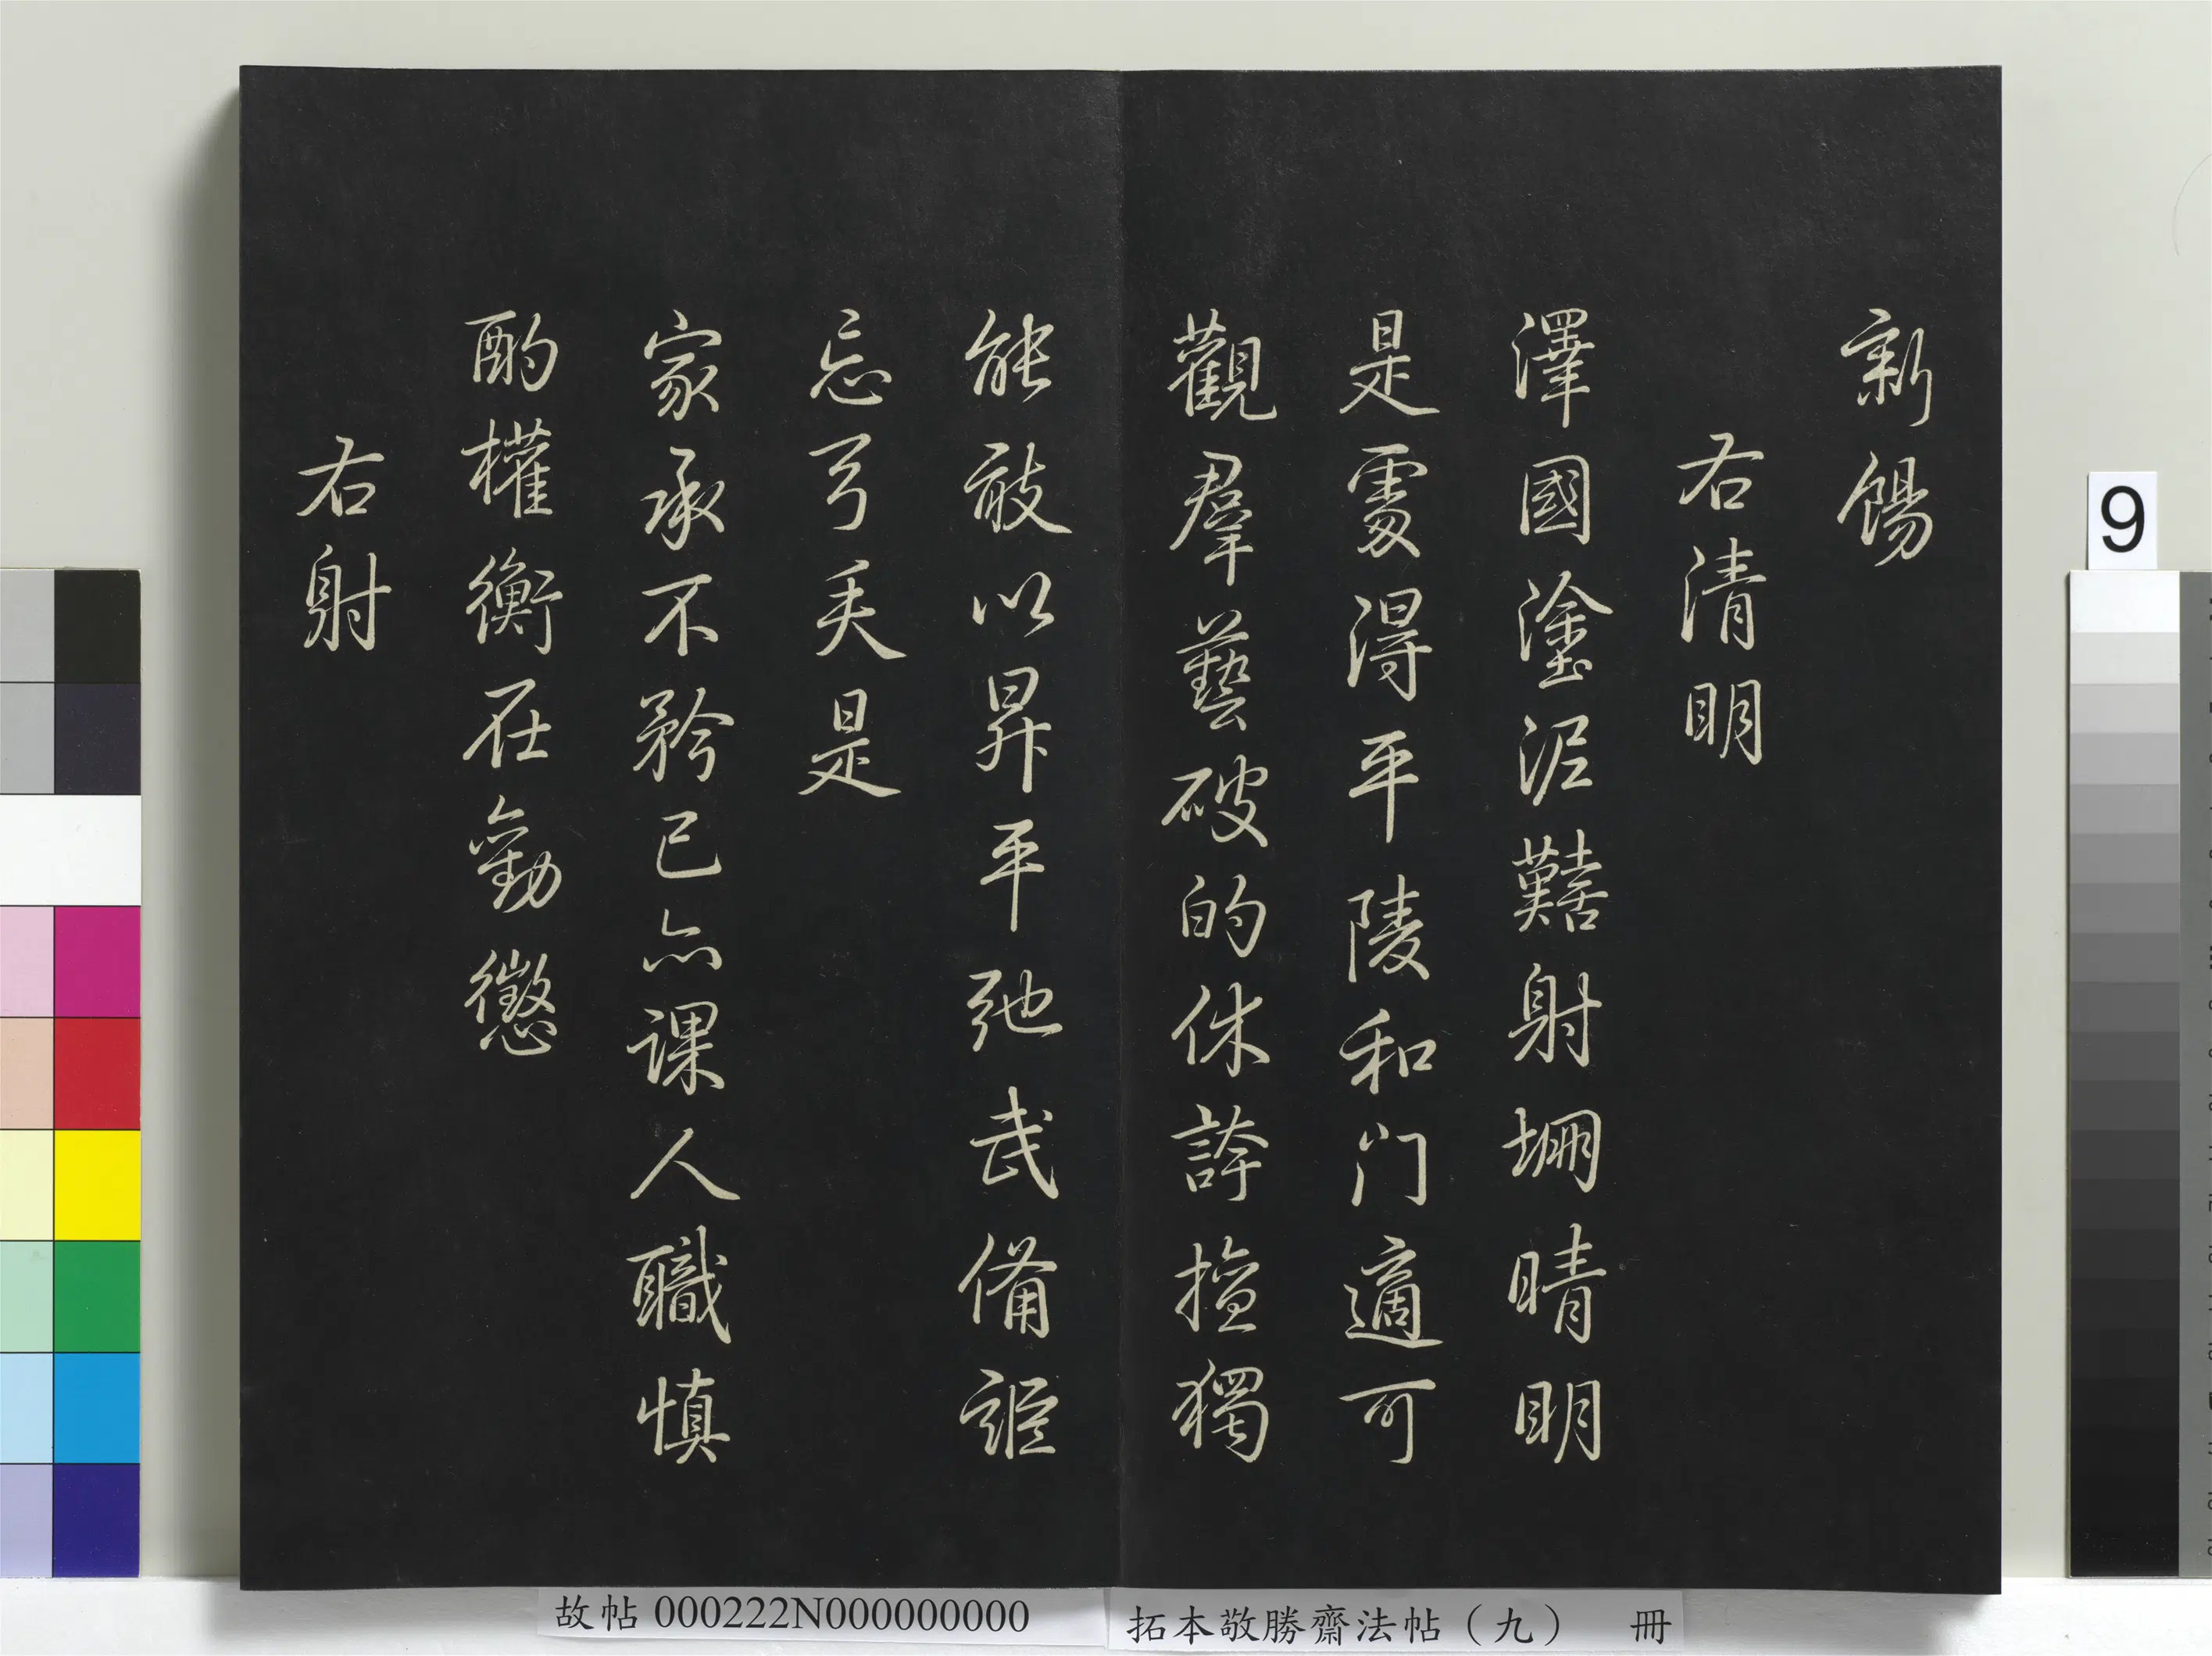 新餳
右清明
澤國塗泥囏射堋晴明
是處得平陵和门適可
觀羣藝破的休誇擅獨
能敢以昇平弛武備詎
忘弓矢是
家承不矜已亦課人職慎
酌權衡在勸懲
右射
9
故帖 000222N000000000
拓本敬勝齋法帖（九） 冊